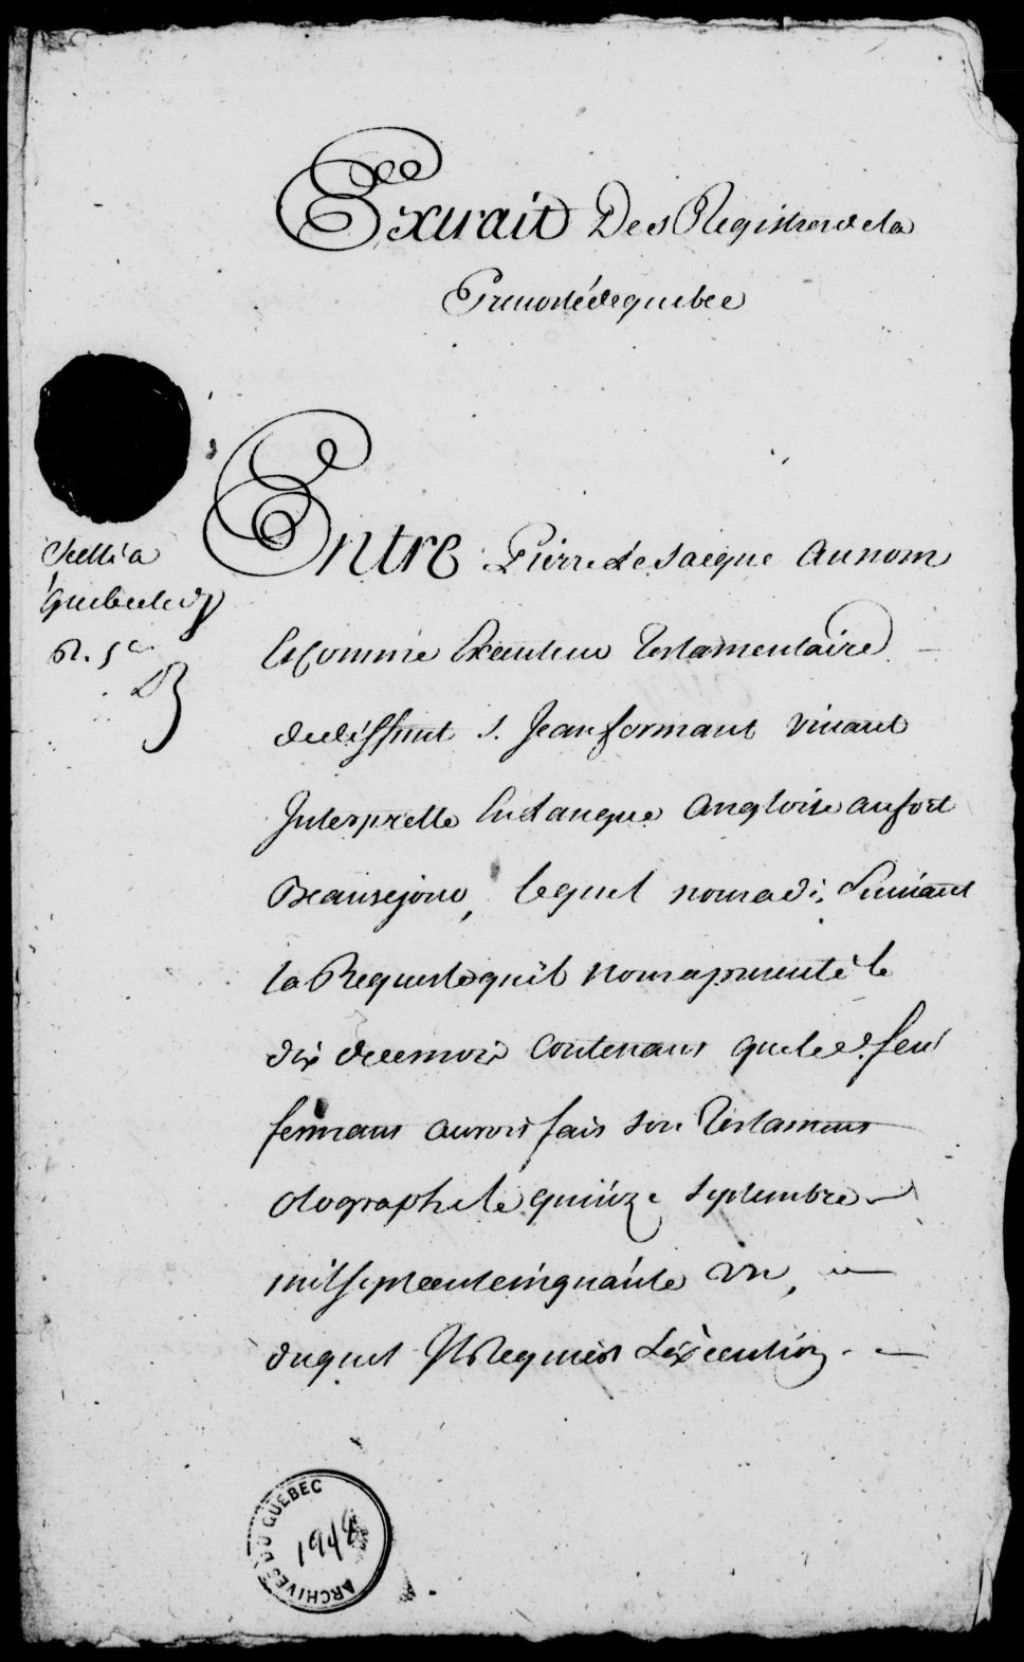 Extrait Des Registres de la
Prevosté de quebec
Scellé a
quebec led.
R. 5
Entre Pierre Lesacque au nom
Et Comme Executeur Testamentaire
de deffunt S. Jean formant vivant
Interprette En Langue Angloise au fort
Beausejour, lequel nous a dit, Suivant
la Requeste qu'il nous a presenté le
dix de ce mois Contenant que led. feu
fermant auroit fait son Testament
olographe le quinze Septembre
mil sept cent cinquante un,
duquel Il Requiert L'exécution.
ARCHIVES DU QUÉBEC
194